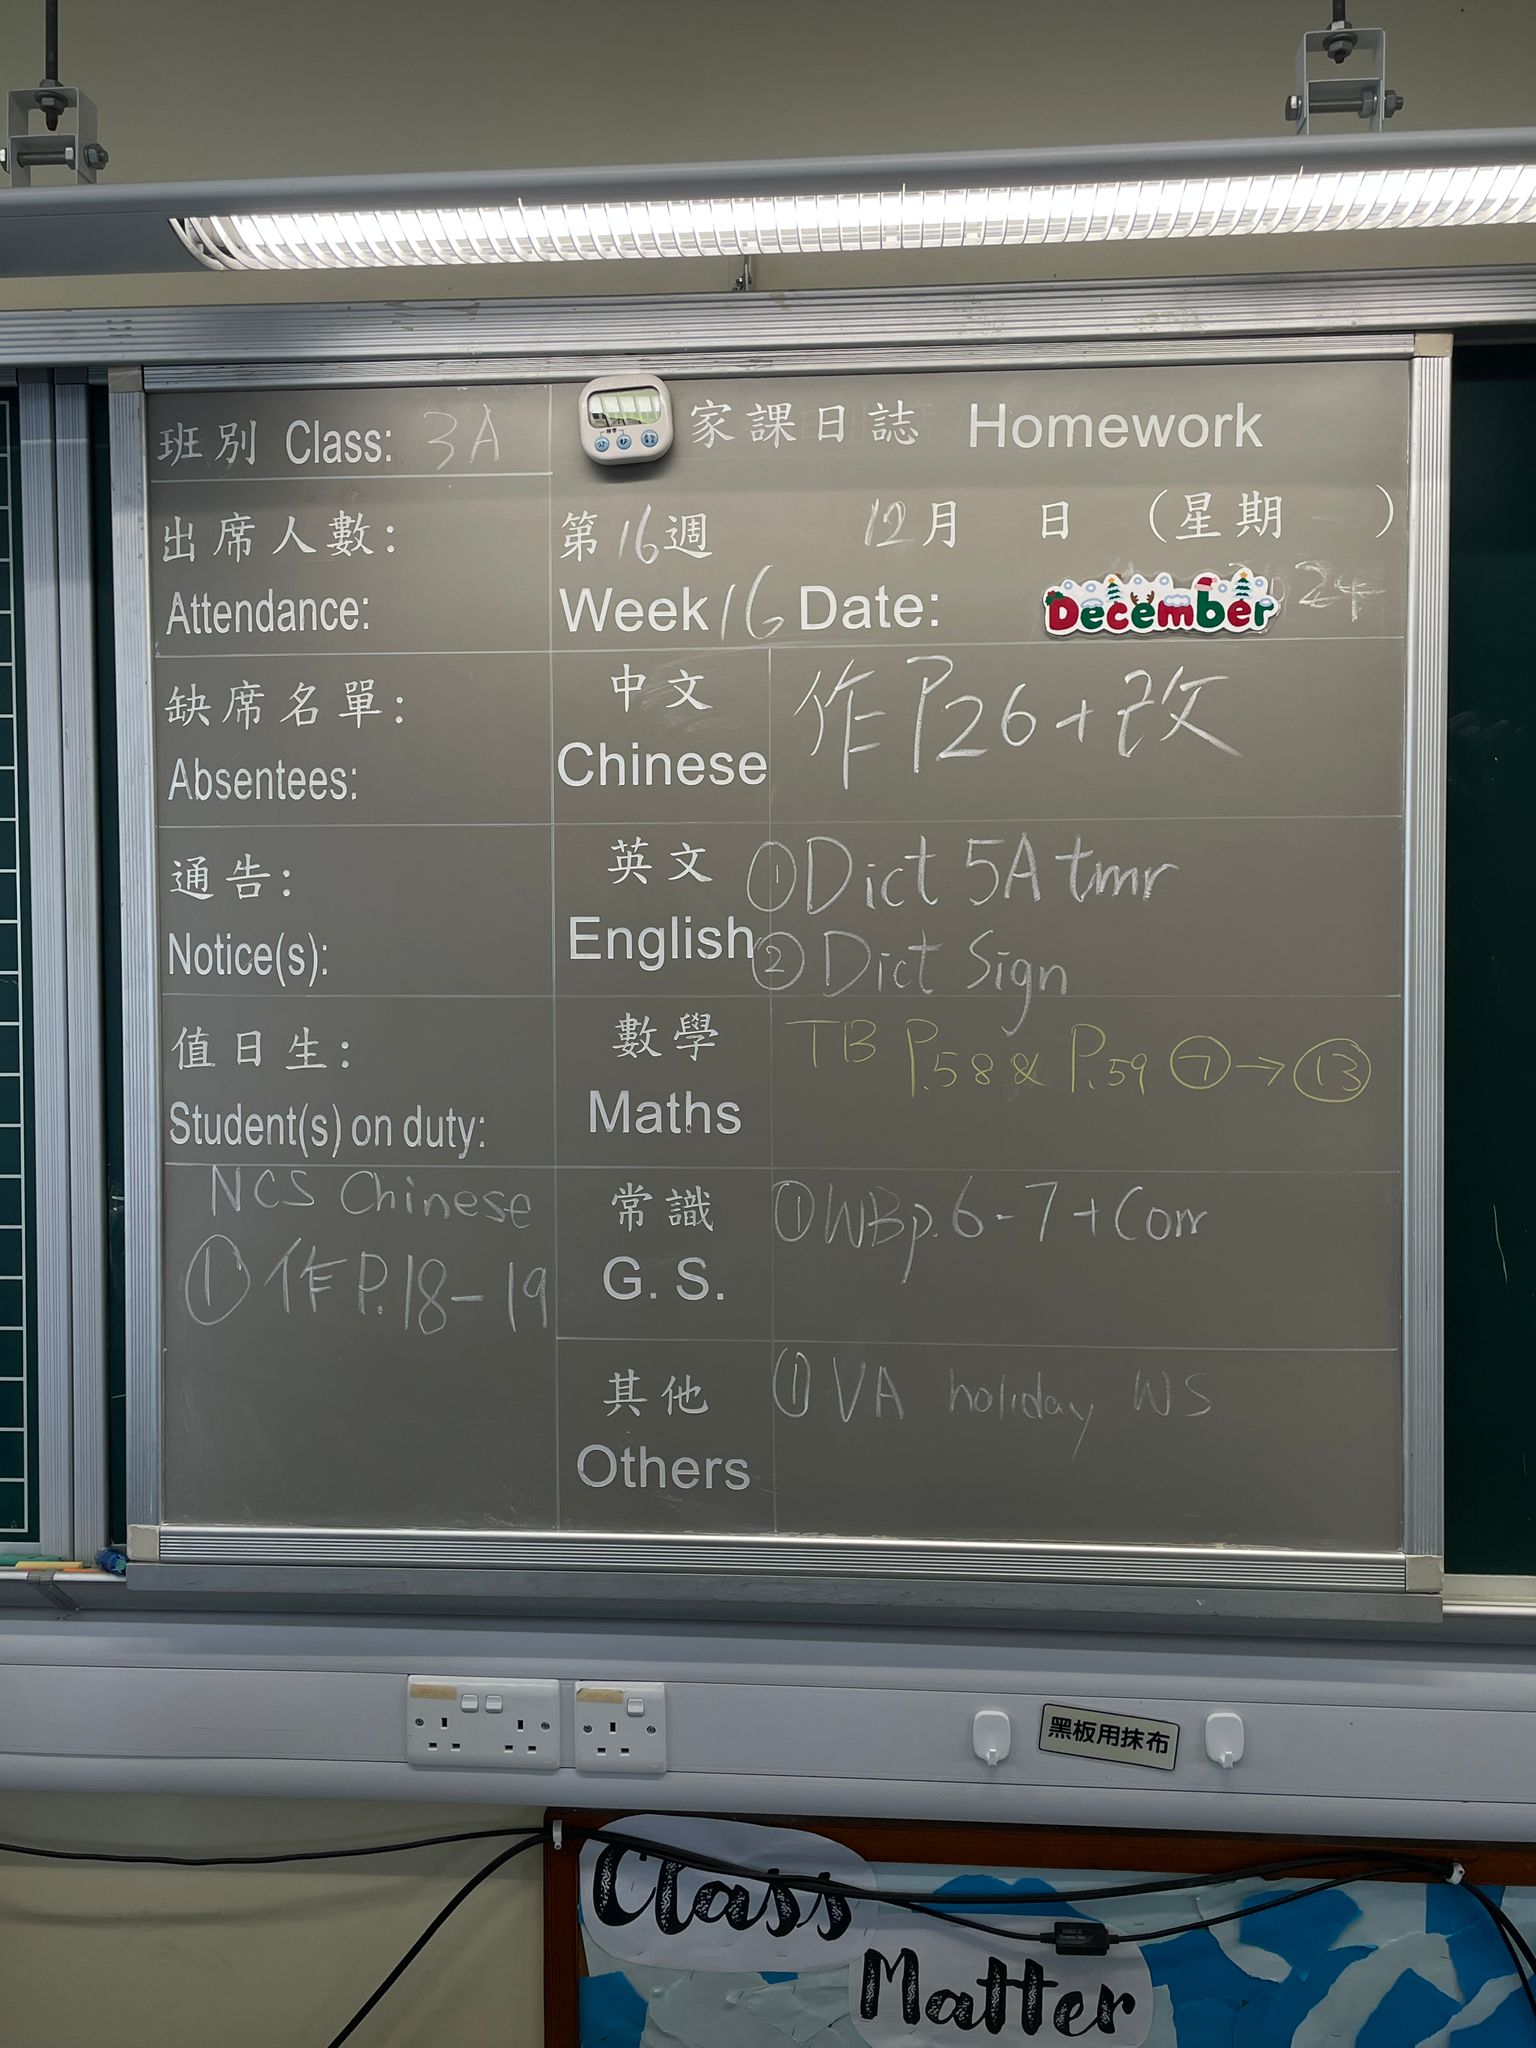 班別 Class: 3A
家課日誌 Homework
出席人數:
Attendance:
第16週 12月 日 (星期 )
Week 16 Date: December 24
缺席名單:
Absentees:
中文
Chinese
作P26+改
通告:
Notice(s):
英文
English
① Dict 5A tmr
② Dict Sign
值日生:
Student(s) on duty:
數學
Maths
TB P.58 & P.59 ⑦→⑬
NCS Chinese
① 作P.18-19
常識
G. S.
① WB p.6-7+Corr
其他
Others
① VA holiday WS
黑板用抹布
Class
Matter